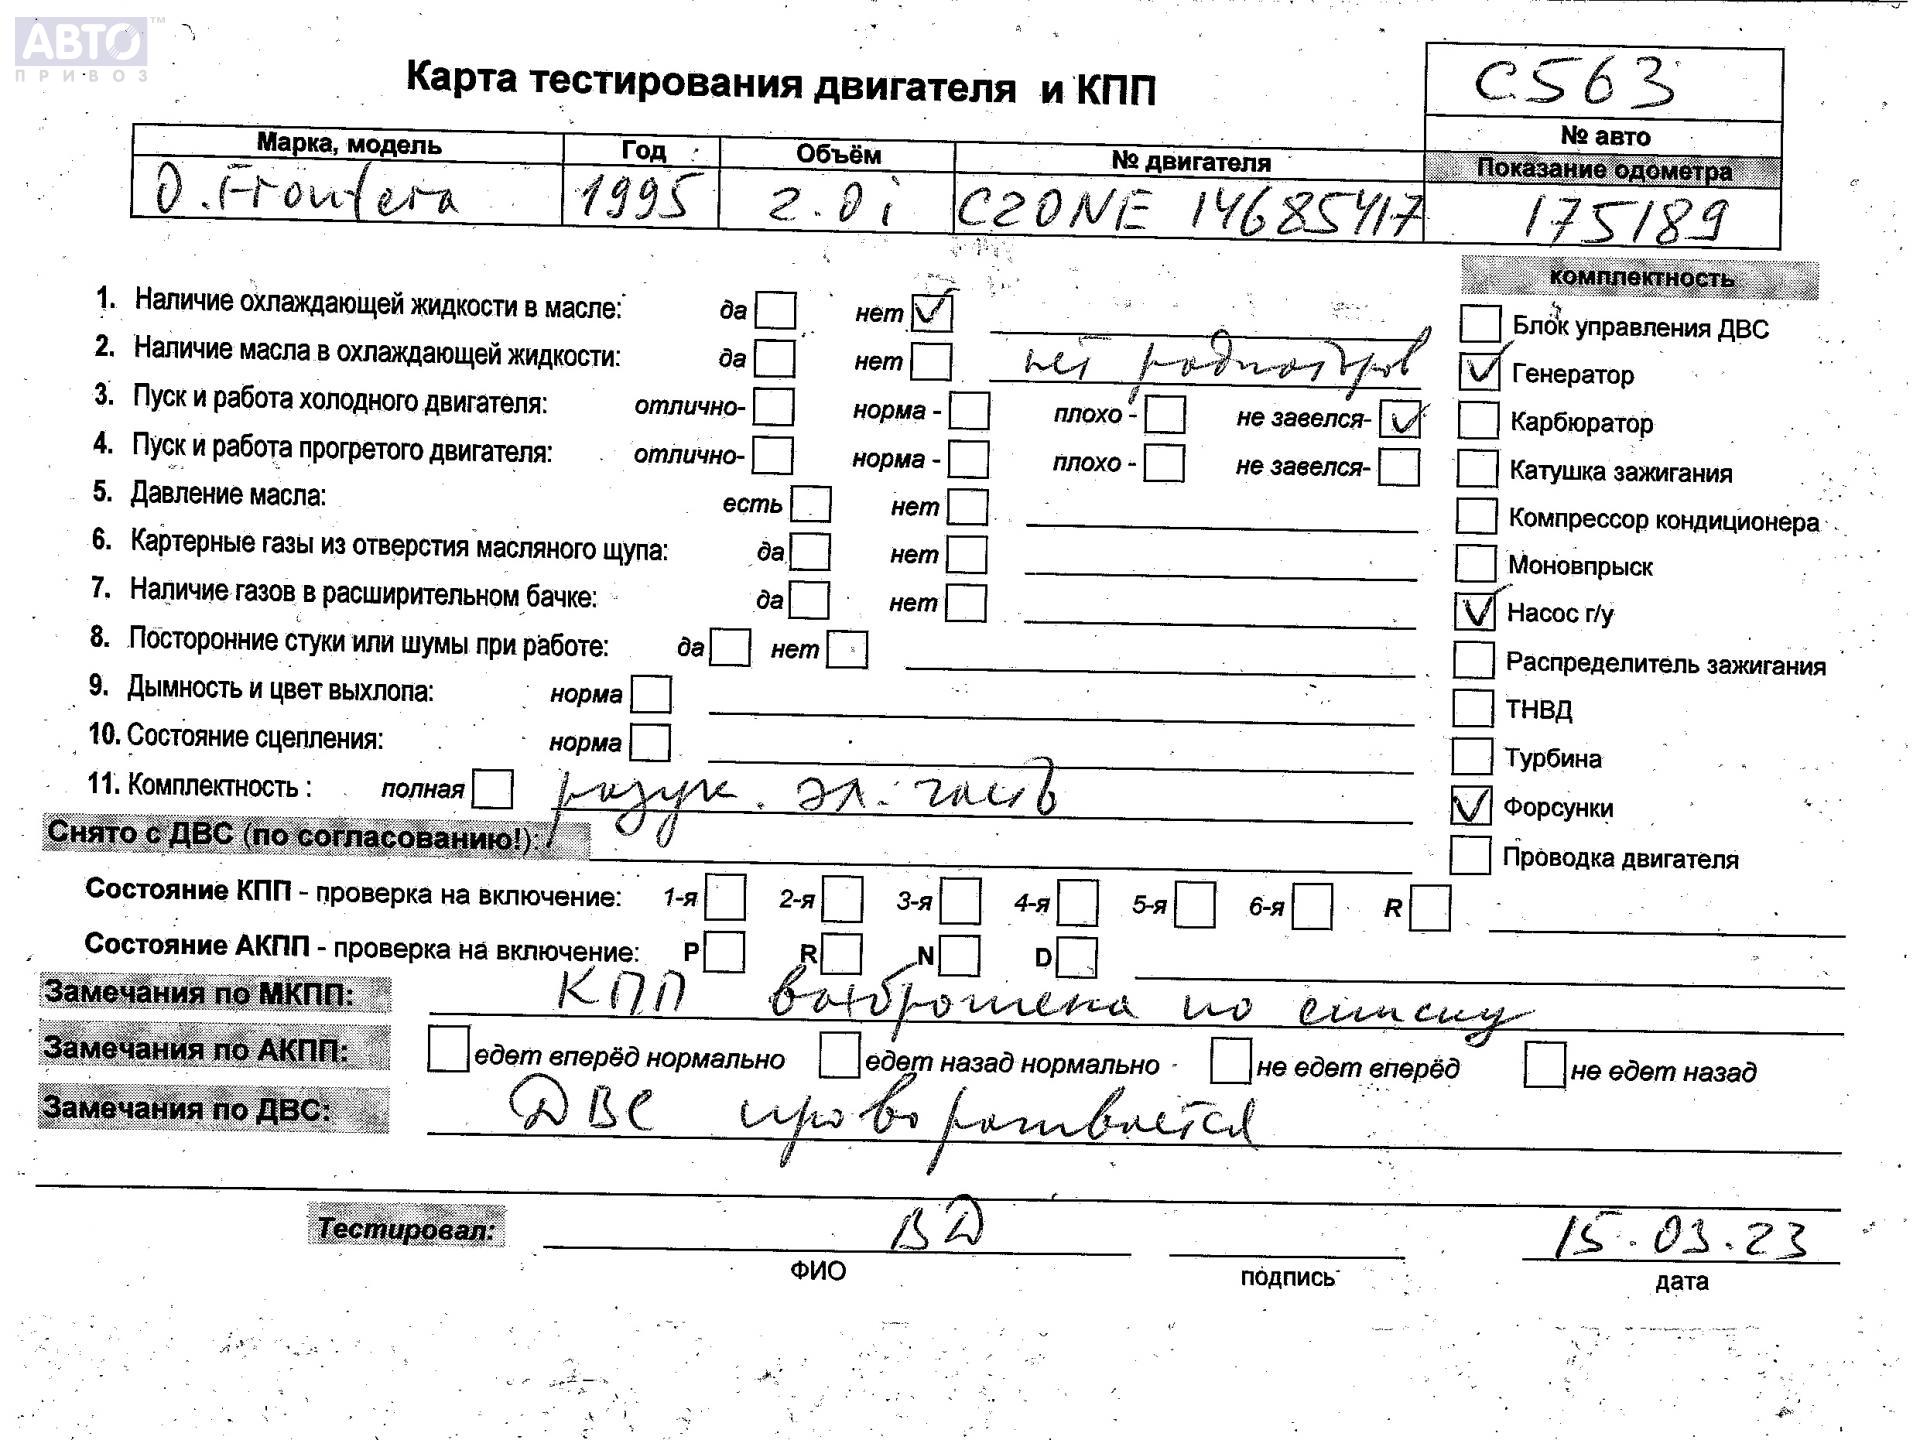 АВТО™
ПРИВОЗ
Карта тестирования двигателя и КПП
C563
№ авто
Марка, модель Год Объём № двигателя Показание одометра
O. Frontera 1995 2.0i C20NE 14685417 175189
комплектность
1. Наличие охлаждающей жидкости в масле: да нет ✓
Блок управления ДВС
2. Наличие масла в охлаждающей жидкости: да нет нет радиаторов
✓ Генератор
3. Пуск и работа холодного двигателя: отлично- норма - плохо - не завелся- ✓
Карбюратор
4. Пуск и работа прогретого двигателя: отлично- норма - плохо - не завелся-
Катушка зажигания
5. Давление масла: есть нет
Компрессор кондиционера
6. Картерные газы из отверстия масляного щупа: да нет
Моновпрыск
7. Наличие газов в расширительном бачке: да нет
✓ Насос г/у
8. Посторонние стуки или шумы при работе: да нет
Распределитель зажигания
9. Дымность и цвет выхлопа: норма
ТНВД
10. Состояние сцепления: норма
Турбина
11. Комплектность : полная разук. эл. часть
✓ Форсунки
Снято с ДВС (по согласованию!):
Проводка двигателя
Состояние КПП - проверка на включение: 1-я 2-я 3-я 4-я 5-я 6-я R
Состояние АКПП - проверка на включение: P R N D
Замечания по МКПП: КПП по списку
Замечания по АКПП: едет вперёд нормально едет назад нормально - не едет вперёд не едет назад
Замечания по ДВС: ДВС проворачивается
Тестировал: ВД 15.03.23
ФИО подпись дата